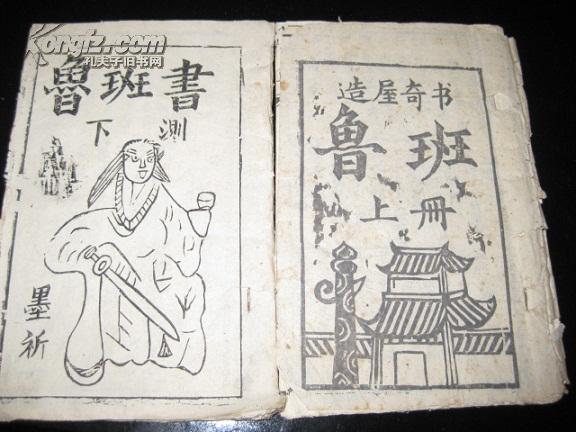 kongfz.com
孔夫子旧书网
魯班書
下測
墨祈
造屋奇书
魯班
上冊